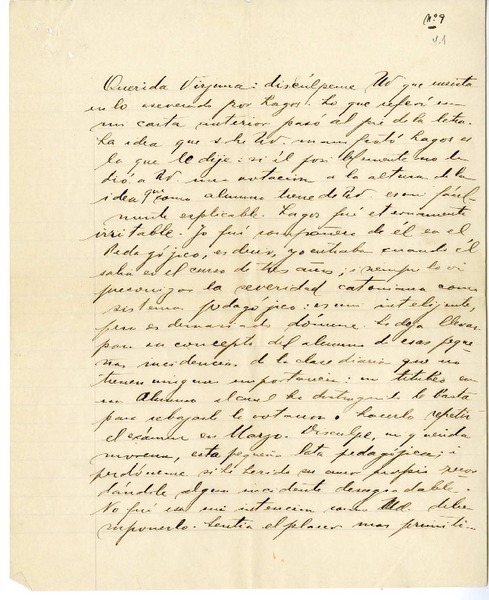 Nº 9
Querida Virginia: discúlpeme Ud que insista
en lo aseverado por Lagos. Lo que referí en
mi carta anterior pasó al pié de la letra.
La idea que sobre Ud. manifestó Lagos es
lo que le dije: si él posiblemente no le
dió a Ud una votacion a la altura de la
idea que como alumno tiene de Ud. es mui fácil
mente esplicable. Lagos fué eternamente
irritable. Yo fuí compañero de él en el
Pedagójico, es decir, yo entraba cuando él
salia en el curso de tres años; i siempre lo vi
preconizar la severidad catoniana como
sistema pedagójico. es mui intelijente,
pero es demasiado dómine. Se deja llevar
para su concepto del alumno de esas peque
ñas incidencias de la clase diaria que no
tienen ninguna importancia: un titubeo en
un Alumno al cual ha distinguido le basta
para rebajarle la votacion o hacerlo repetir
el exámen en Marzo. Disculpe, mi querida
morena, esta pequeña lata pedagójica; i
perdóneme si he herido su amor propio recor
dándole algun incidente desagradable.
No fué esa mi intencion como Ud. debe
suponerlo. Sentia el placer mas primiti-